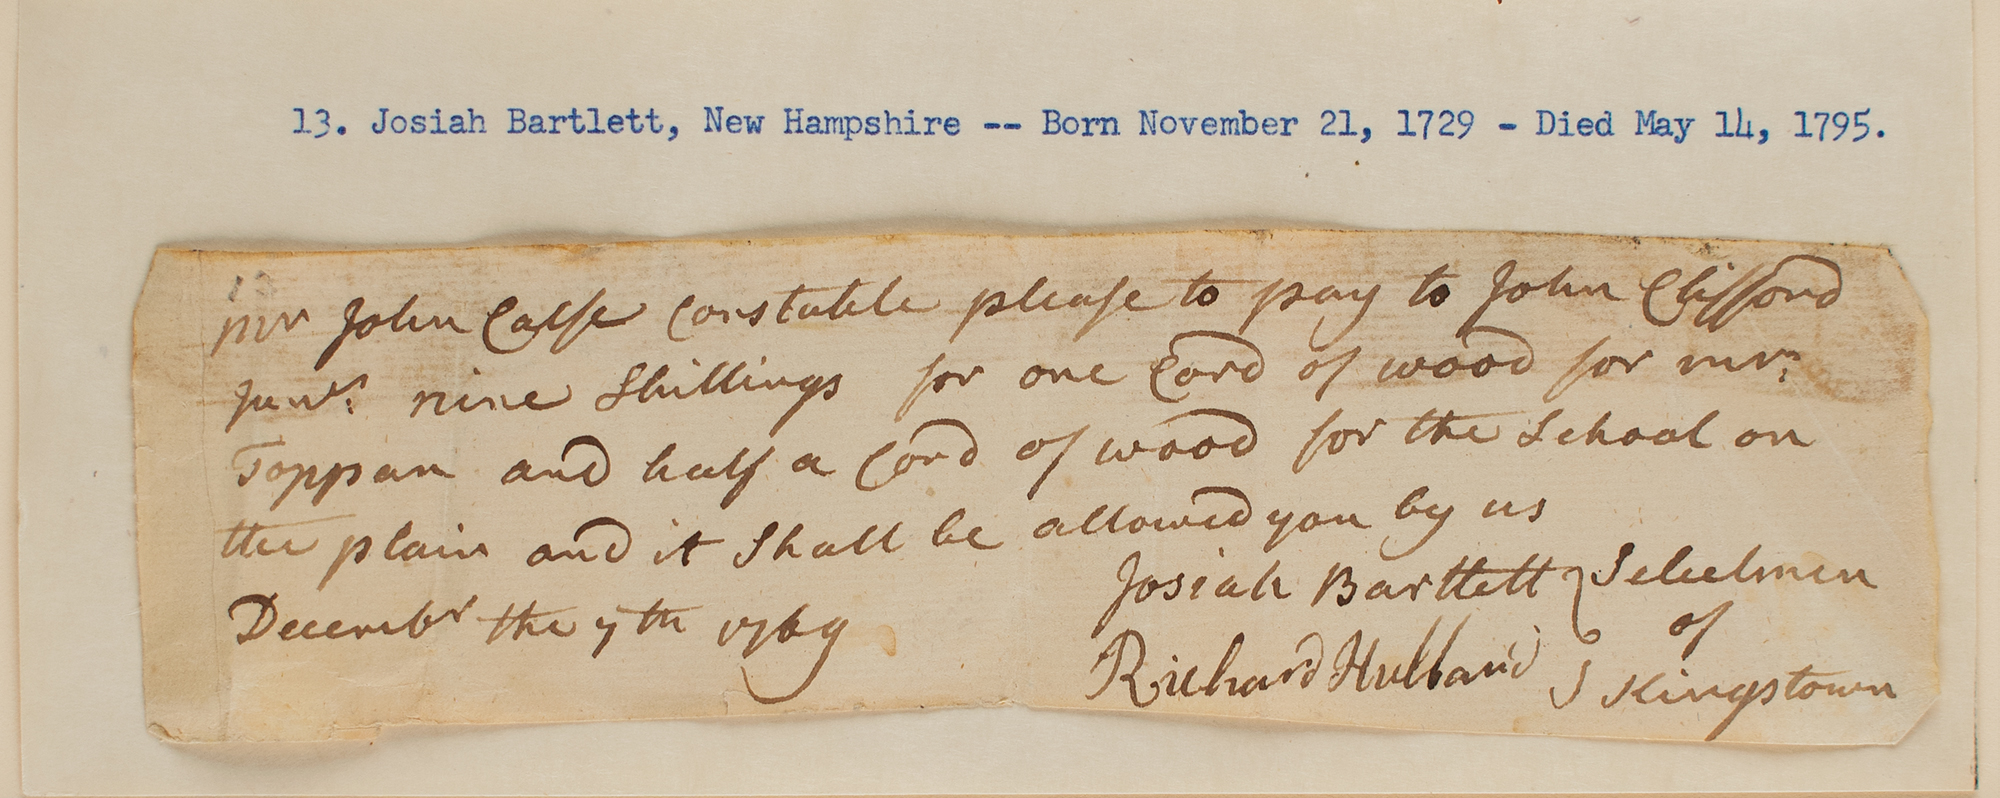 13. Josiah Bartlett, New Hampshire -- Born November 21, 1729 - Died May 14, 1795.
13
Mr John Calfe Constable please to pay to John Clifford
Junr: nine Shillings for one Cord of wood for mr:
Toppan and half a Cord of wood for the School on
the plain and it Shall be allowed you by us
Decembr the 7th 1769
Josiah Bartlett } Selectmen
of
Richard Hubbard Kingstown